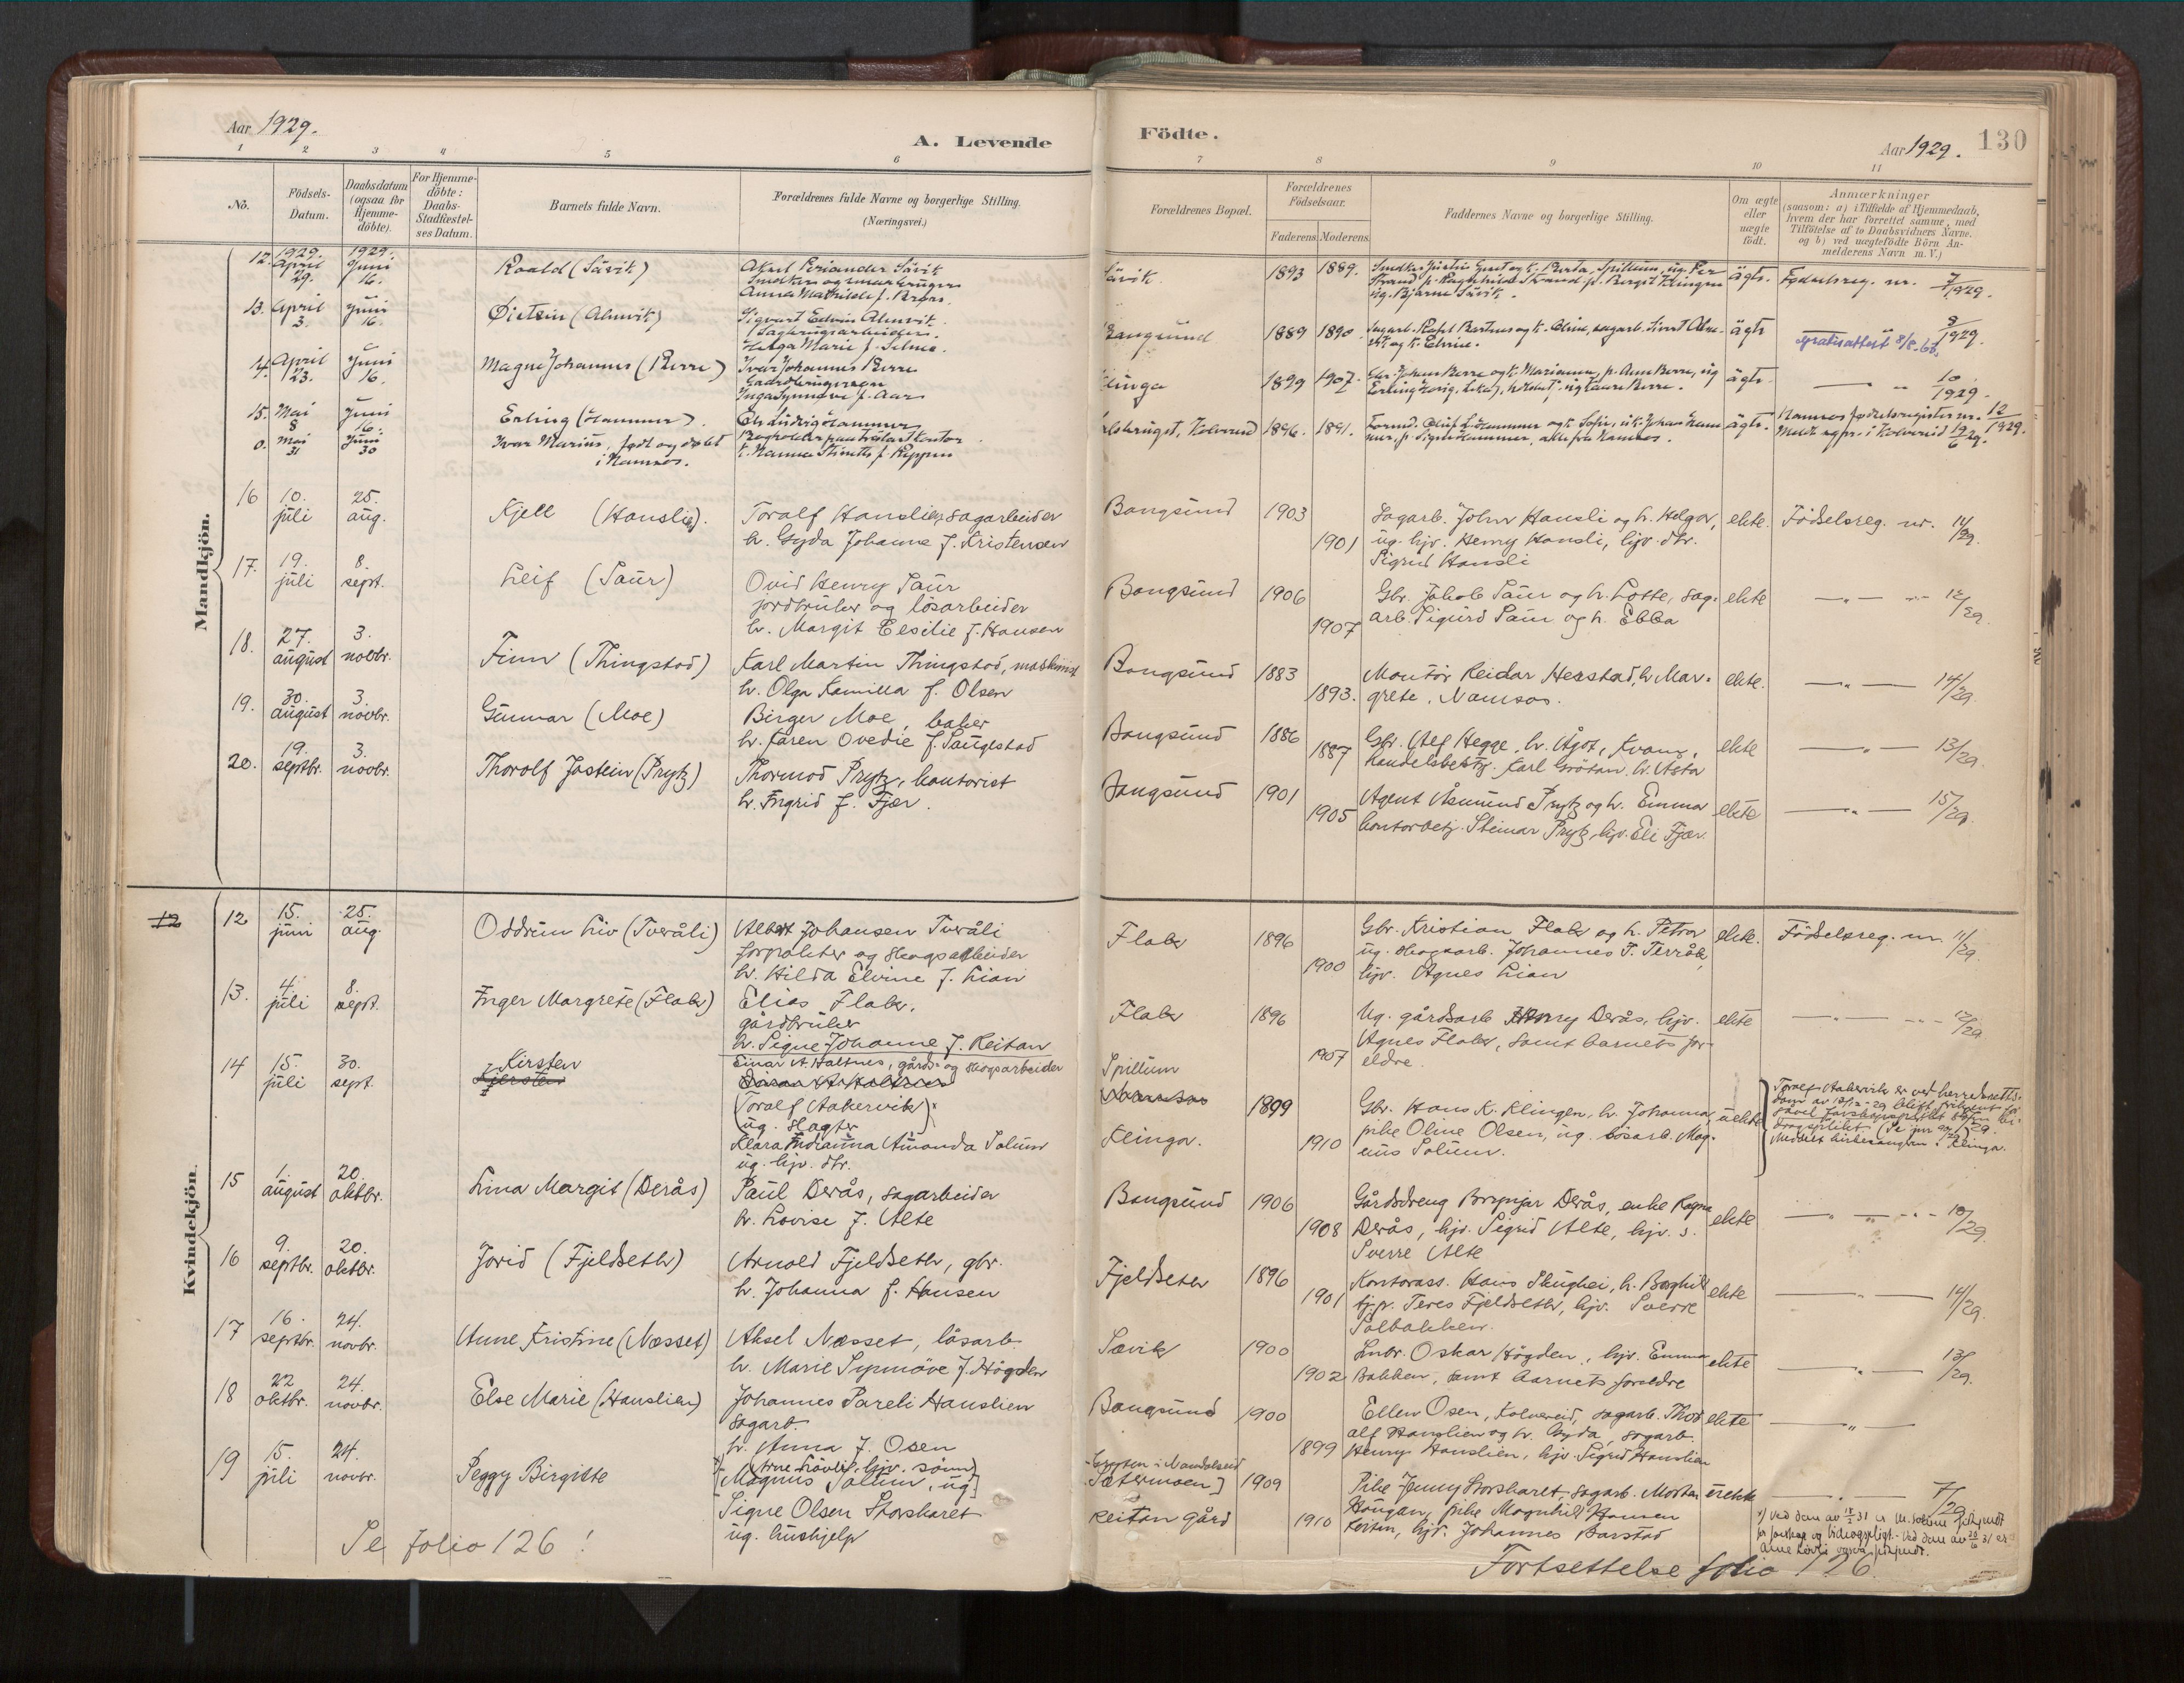 Aar 1929.
A. Levende
Födte.
Aar 1929.
130
1 2 3 4 5 6 7 8 9 10 11
No.
Födsels-
Datum.
Daabsdatum
(ogsaa for
Hjemme-
döbte).
For Hjemme-
döbte:
Daabs-
Stadfæstel-
ses Datum.
Barnets fulde Navn.
Forældrenes fulde Navne og borgerlige Stilling.
(Næringsvei.)
Forældrenes Bopæl.
Forældrenes
Födselsaar.
Faderens. Moderens.
Faddernes Navne og borgerlige Stilling.
Om ægte
eller
uægte
födt.
Anmærkninger
(saasom: a) i Tilfælde af Hjemmedaab,
hvem der har forrettet samme, med
Tilföielse af to Daabsvidners Navne.
og b) ved uægtefödte Börn An-
melderens Navn m. V.)
Mandkjön.
12. 1929. April 29. 1929. Juni 16.
Roald (Sävik)
Aksel Periander Sävik
Anna Mathilde f. Brørs.
Sävik. 1893 1889.
ug. Bjarne Sävik.
ägte. Fødselsreg. nr. 7/1929.
13. April 3. Juni 16.
Øistein (Almvik)
Sigvart Edvin Almvik.
Sagbrugsarbeider.
Helga Marie f. Selnes.
Bangsund 1889 1890.
ägte 8/1929.
Gratisattest 8/8.60.
14. April 23. Juni 16.
Magne Johannes (Berre)
Ivar Johannes Berre
Gaardbruger
Inga Synnøve f. Aar
Klinga 1899 1907.
ägte. — " 10/1929.
15. Mai 8 Juni 16.
Erling (Hammer).
Ole Ludvig Hammer
k. Hanna f. Kippen
Kolvereid 1896. 1891.
ägte. Namsos fødselsregister nr. 12/1929.
0. Mai 31 Juni 30
Ivar Marius, født og døbt
i Namsos.
16 10. juli 25. aug.
Kjell (Hanslien).
Toralf Hanslien, sagarbeider
h. Gyda Johanne f. Kristensen
Bangsund 1903 1901
Sagarb. John Hansli og h. Helga,
ug. hjv. Henry Hansli, hjv. dtr.
Sigrid Hansli
ekte. Födselsreg. nr. 14/29.
17. 19. juli 8. sept.
Leif (Saur)
Ovid Henry Saur
jordbruker og lösarbeider
h. Margit Cesilie f. Hansen
Bangsund 1906 1907
Gbr. Jakob Saur og h. Lotte, sag-
arb. Sigurd Saur og h. Ebba
ekte — " — 12/29
18. 27. august 3. novbr.
Finn (Thingstad)
Karl Martin Thingstad, maskinist
h. Olga Kamilla f. Olsen
Bangsund 1883 1893.
Montör Reidar Herstad, h. Mar-
grete, Namsos.
ekte. — " — 14/29
19. 30. august 3. novbr.
Gunnar (Moe)
Birger Moe, baker
h. Karen Ovedie f. Saugestad
Bangsund 1886 1887
Gbr. Alf Hegge, h. Ågot, Kvam,
handelsbestyr. Karl Grötan, h. Asta
ekte — " — 13/29
20. 19. septbr. 3. novbr.
Thorolf Jostein (Prytz)
Thormod Prytz, kontorist
h. Ingrid f. Fjær.
Bangsund 1901 1905
Agent Åsmund Prytz og h. Emma
kontorbetj. Steinar Prytz, hjv. Eli Fjær.
ekte — " — 15/29.
Kvindekjön.
12 12 15. juni 25. aug.
Oddrun Liv (Tveråli)
Albert Johansen Tveråli
forpakter og skogsarbeider
h. Hilda Elvine f. Lian
Flak 1896 1900
Gbr. Kristian Flak og h. Petra
ug. skogsarb. Johannes P. Terråk,
hjv. Agnes Lian
ekte. Födselsreg. nr. 11/29.
13. 4. juli 8. sept.
Inger Margrete (Flak)
Elias Flak,
gårdbruker
h. Signe Johanne f. Reitan
Flak 1896 1907
Ug. gårdsarb Henry Derås, hjv.
Agnes Flak, samt barnets for-
eldre.
ekte — " — 12/29
14 15. juli 30. sept.
Kirsten
Kjersten
Einar A. Haltnes, gårds- og skogsarbeider
(Toralf Aakervik)
ug. slagter
Klara Indianna Amanda Solum
ug. hjv. dtr.
Spillum
Namsos
Klinga. 1899 1910
Gbr. Hans K. Klingen, h. Johanna,
pike Oline Olsen, ug. lösarb. Mag-
nus Solum.
uekte
Toralf Aakervik er ved herredsretts-
15 1. august 20. oktbr.
Lina Margit (Derås)
Paul Derås, sagarbeider
h. Lovise f. Alte
Bangsund 1906 1908
Gårdsdreng Brynjar Derås, enke Ragna
Derås, hjv. Sigrid Alte, hjv. s.
Sverre Alte
ekte — " — 10/29.
16 9. septbr. 20. oktbr.
Jorid (Fjeldseth)
Arnold Fjeldseth, gbr.
h. Johanna f. Hansen
Fjeldseth 1896 1901
Kontorass. Hans Skughei, h. Borghild
tj.p. Teres Fjeldseth, hjv. Sverre
Solbakken.
ekte — " — 14/29.
17 16. septbr. 24. novbr.
Anne Kristine (Næsset)
Aksel Næsset, lösarb.
h. Marie Synnöve f. Högden
Sævik 1900 1902
Lnbr. Oskar Högden, hjv. Emma
Bakken, samt barnets foreldre
ekte — " — 13/29.
18 22 oktbr. 24. novbr.
Else Marie (Hanslien)
Johannes Pareli Hanslien
sagarb.
h. Anna f. Osen
Bangsund 1900 1899
Ellen Osen, Kolvereid, sagarb. Thor-
alf Hanslien og h. Gyda, sagarb.
Henry Hanslien, hjv. Sigrid Hanslien
ekte — " —
19 15. juli 24. novbr.
Peggy Birgitte
(Arne Lövli, hjv. sönn)
[Magnus Solum, ug.]
Signe Olsen Storskaret
ug. hushjelp
Sætermoen] 1909
Reitan gård 1910
Pike Jenny Storskaret, sagarb. Morten
Haugan, pike Magnhild Hansen
hjv. Johannes Barstad
uekte — " — 7/29
Se folio 126!
Fortsettelse folio 126.